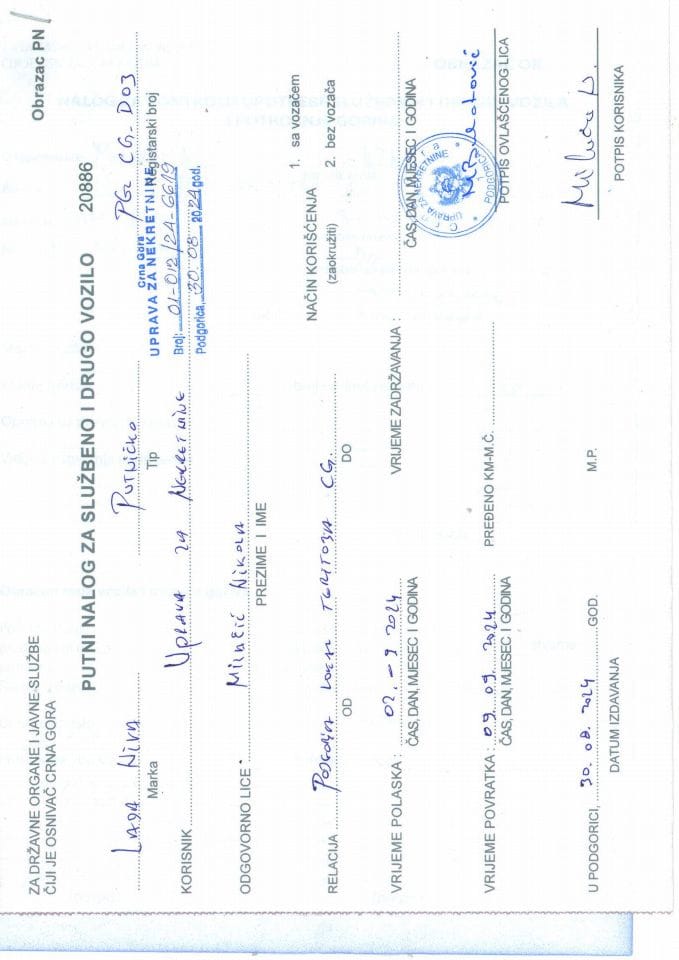 Obrazac PN
ZA DRŽAVNE ORGANE I JAVNE-SLUŽBE
ČIJI JE OSNIVAČ CRNA GORA
PUTNI NALOG ZA SLUŽBENO I DRUGO VOZILO 20886
LADA NIVA PUTNIČKO PG CG-D03
Marka Tip Registarski broj
Crna Gora
UPRAVA ZA NEKRETNINE
Broj: 01-012/24-6619
Podgorica, 30.08 2024 god.
KORISNIK UPRAVA ZA NEKRETNINE
ODGOVORNO LICE NIKOLA
PREZIME I IME
NAČIN KORIŠĆENJA 1. sa vozačem
(zaokružiti) 2. bez vozača
RELACIJA CG
OD DO
VRIJEME POLASKA : 02.-9 2024 VRIJEME ZADRŽAVANJA :
ČAS, DAN, MJESEC I GODINA ČAS, DAN, MJESEC I GODINA
UPRAVA ZA NEKRETNINE
PODGORICA
VRIJEME POVRATKA : 09.09.2024 PREĐENO KM-M.Č.
ČAS, DAN, MJESEC I GODINA POTPIS OVLAŠĆENOG LICA
U PODGORICI, 30.08.2024 GOD. M.P.
DATUM IZDAVANJA POTPIS KORISNIKA